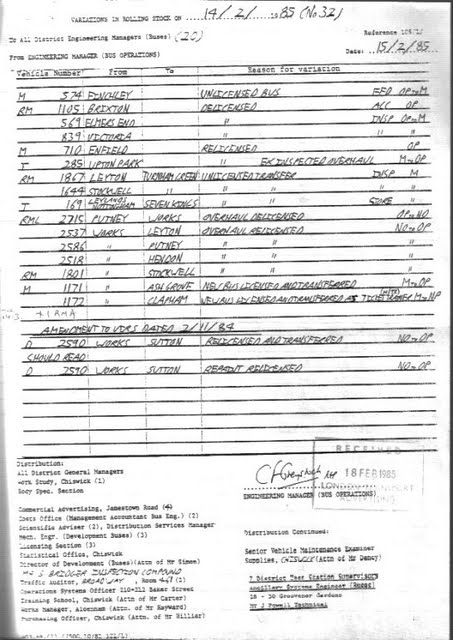 VARIATIONS IN ROLLING STOCK ON 14/2/1985 (No 32)
To All District Engineering Managers (Buses) (20)
Reference
From ENGINEERING MANAGER (BUS OPERATIONS)
Date: 15/2/85
Vehicle Number From To Reason for variation
M 574 FINCHLEY UNLICENSED BUS EED OP to M
RM 1105 BRIXTON DELICENSED ACC OP
569 ELMERS END " INSP OP to M
839 VICTORIA " " "
M 710 ENFIELD RELICENSED OP
T 285 UPTON PARK " EX INSPECTED OVERHAUL M to OP
RM 1867 LEYTON TURNHAM GREEN UNLICENSED TRANSFER INSP M
1644 STOCKWELL " " " " "
T 169 LEYLANDS NOTTINGHAM SEVEN KINGS " " STORE "
RML 2715 PUTNEY WORKS OVERHAUL DELICENSED OP to NO
2537 WORKS LEYTON OVERHAUL RELICENSED NO to OP
2586 " PUTNEY " "
2518 " HENDON " "
RM 1801 " STOCKWELL " "
M 1171 ASH GROVE NEW BUS LICENSED AND TRANSFERRED M to OP
1172 " CLAPHAM NEW BUS LICENSED AND TRANSFERRED AS TRAINER
AMENDMENT TO VIRS DATED 2/11/84
D 2590 WORKS SUTTON RELICENSED AND TRANSFERRED NO to OP
SHOULD READ
D 2590 WORKS SUTTON REPAINT RELICENSED NO to OP
Distribution:
All District General Managers
Work Study, Chiswick (1)
Body Spec. Section
RECEIVED
18 FEB 1985
LONDON TRANSPORT
ADVERTISING
ENGINEERING MANAGER (BUS OPERATIONS)
Commercial Advertising, Jamestown Road (4)
Specs Office (Management Accountant Bus Eng.) (2)
Scientific Adviser (2), Distribution Services Manager
Mech. Engr. (Development Buses) (3)
Licensing Section (3)
Statistical Office, Chiswick
Director of Development (Buses)(Attn of Mr Simon)
BRIDGER INSPECTION COMPOUND
Traffic Auditor, BROADWAY, Room 447 (2)
Operations Systems Officer 110-111 Baker Street
Training School, Chiswick (Attn of Mr Carter)
Works Manager, Aldenham (Attn. of Mr Hayward)
Purchasing Officer, Chiswick (Attn. of Mr Hillier)
Distribution Continued:
Senior Vehicle Maintenance Examiner
Supplies, CHISWICK (Attn of Mr Dancy)
7 District Test Station Supervisors
Ancillary Systems Engineer (Buses)
18 - 30 Grosvenor Gardens
Mr J Powell Technical